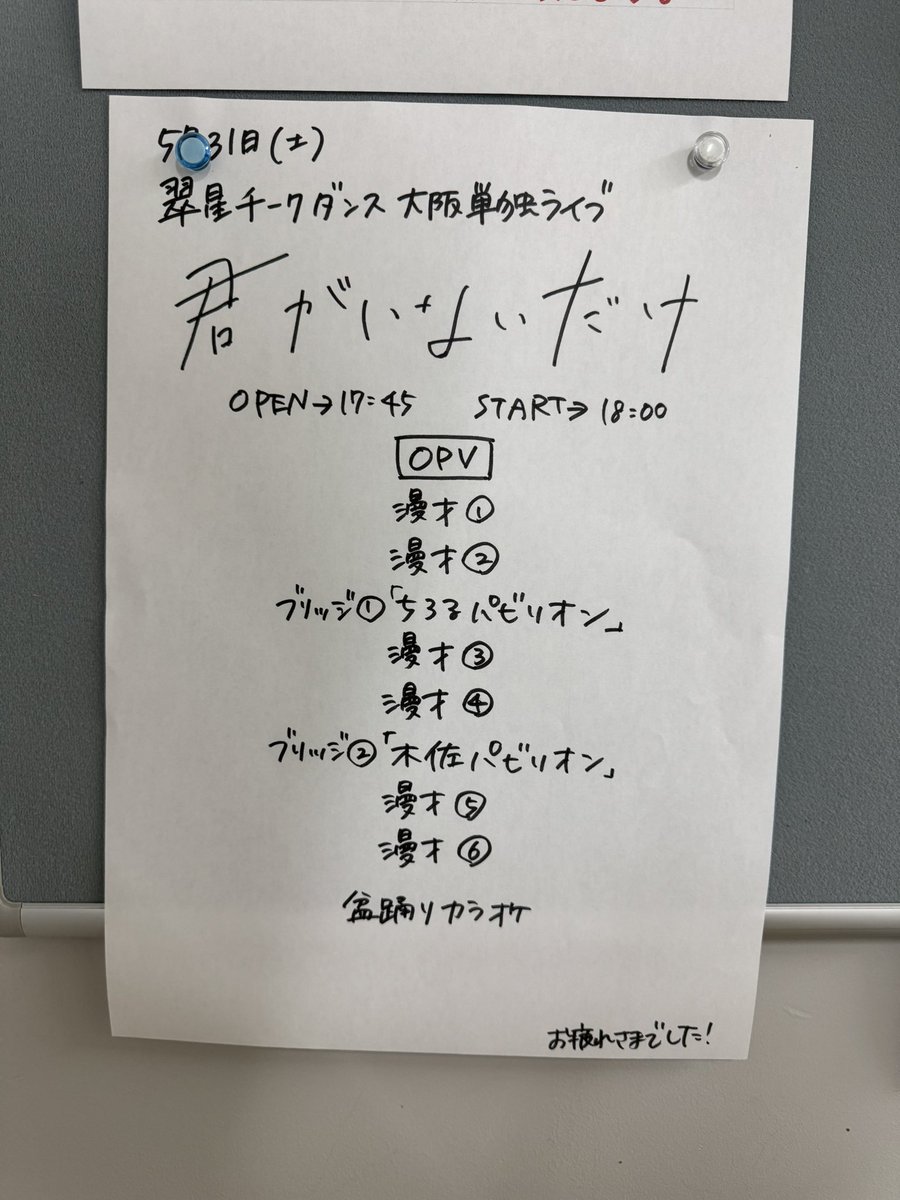 5月31日(土)
翠星チークダンス 大阪単独ライブ
君がいないだけ
OPEN→17:45 START→18:00
OPV
漫才①
漫才②
ブリッジ①「ちろるパビリオン」
漫才③
漫才④
ブリッジ②「木佐パビリオン」
漫才⑤
漫才⑥
盆踊りカラオケ
お疲れさまでした!